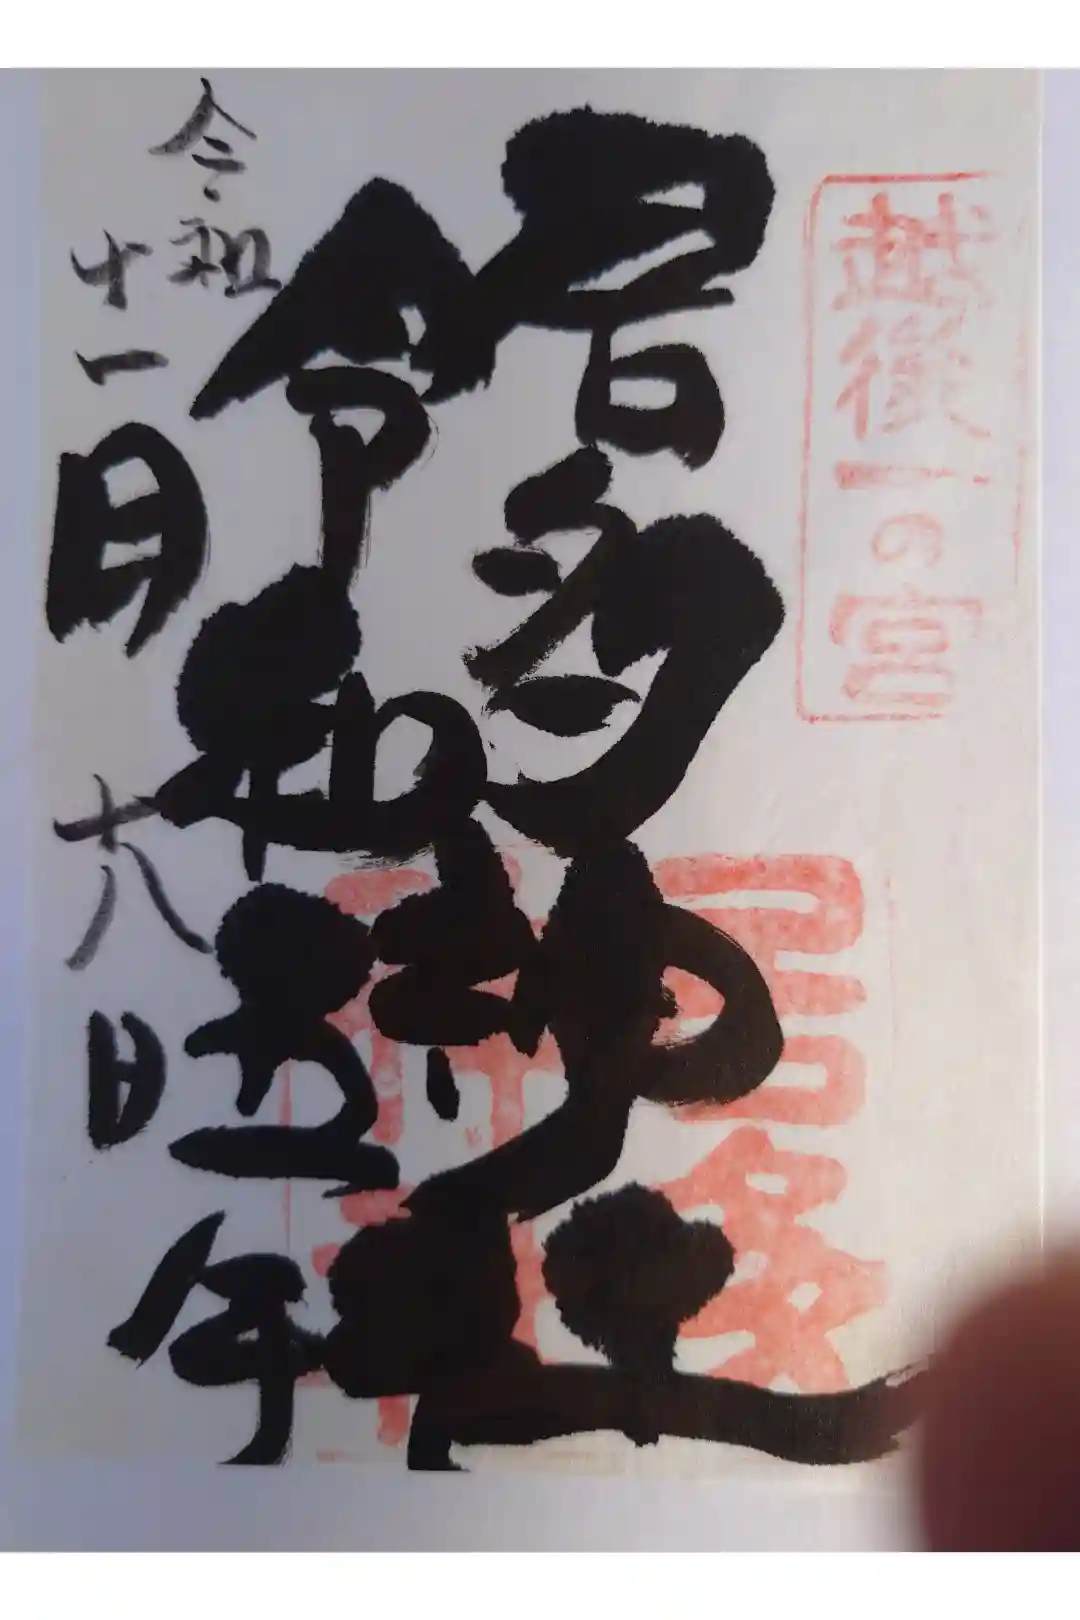 越後一の宮
居多神社
居多
神社
令和五年
令和
十一月十八日